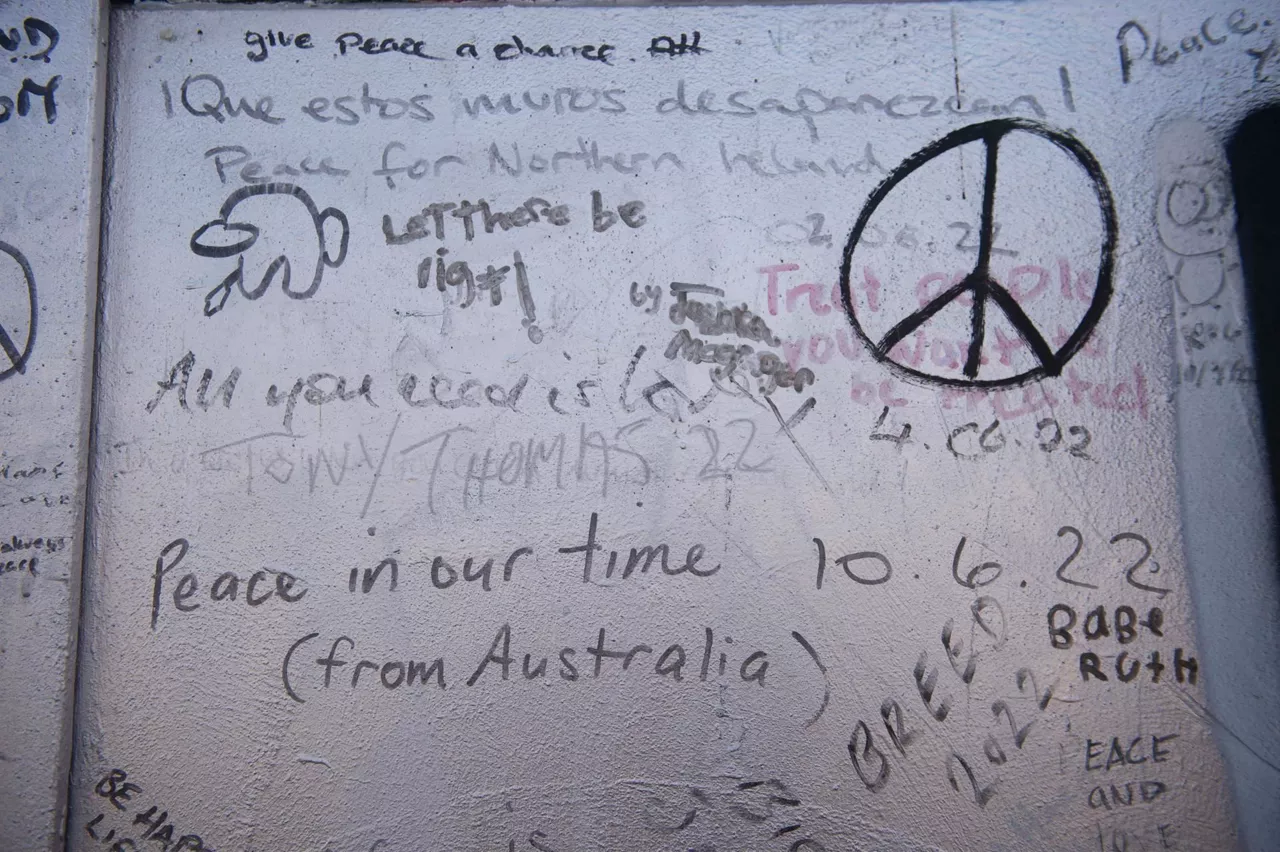 give peace a chance. AH
¡Que estos muros desaparezcan!
Peace for Northern Ireland
Let there be
right!
02.06.22
by Joshua
Treat people
you want to
be treated
All you need is love
4.06.22
TONY THOMAS 22
Peace in our time 10.6.22
(from Australia)
BREED
2022
BaBe
RUtH
PEACE
AND
LOVE
BE HAP
Peace.
always